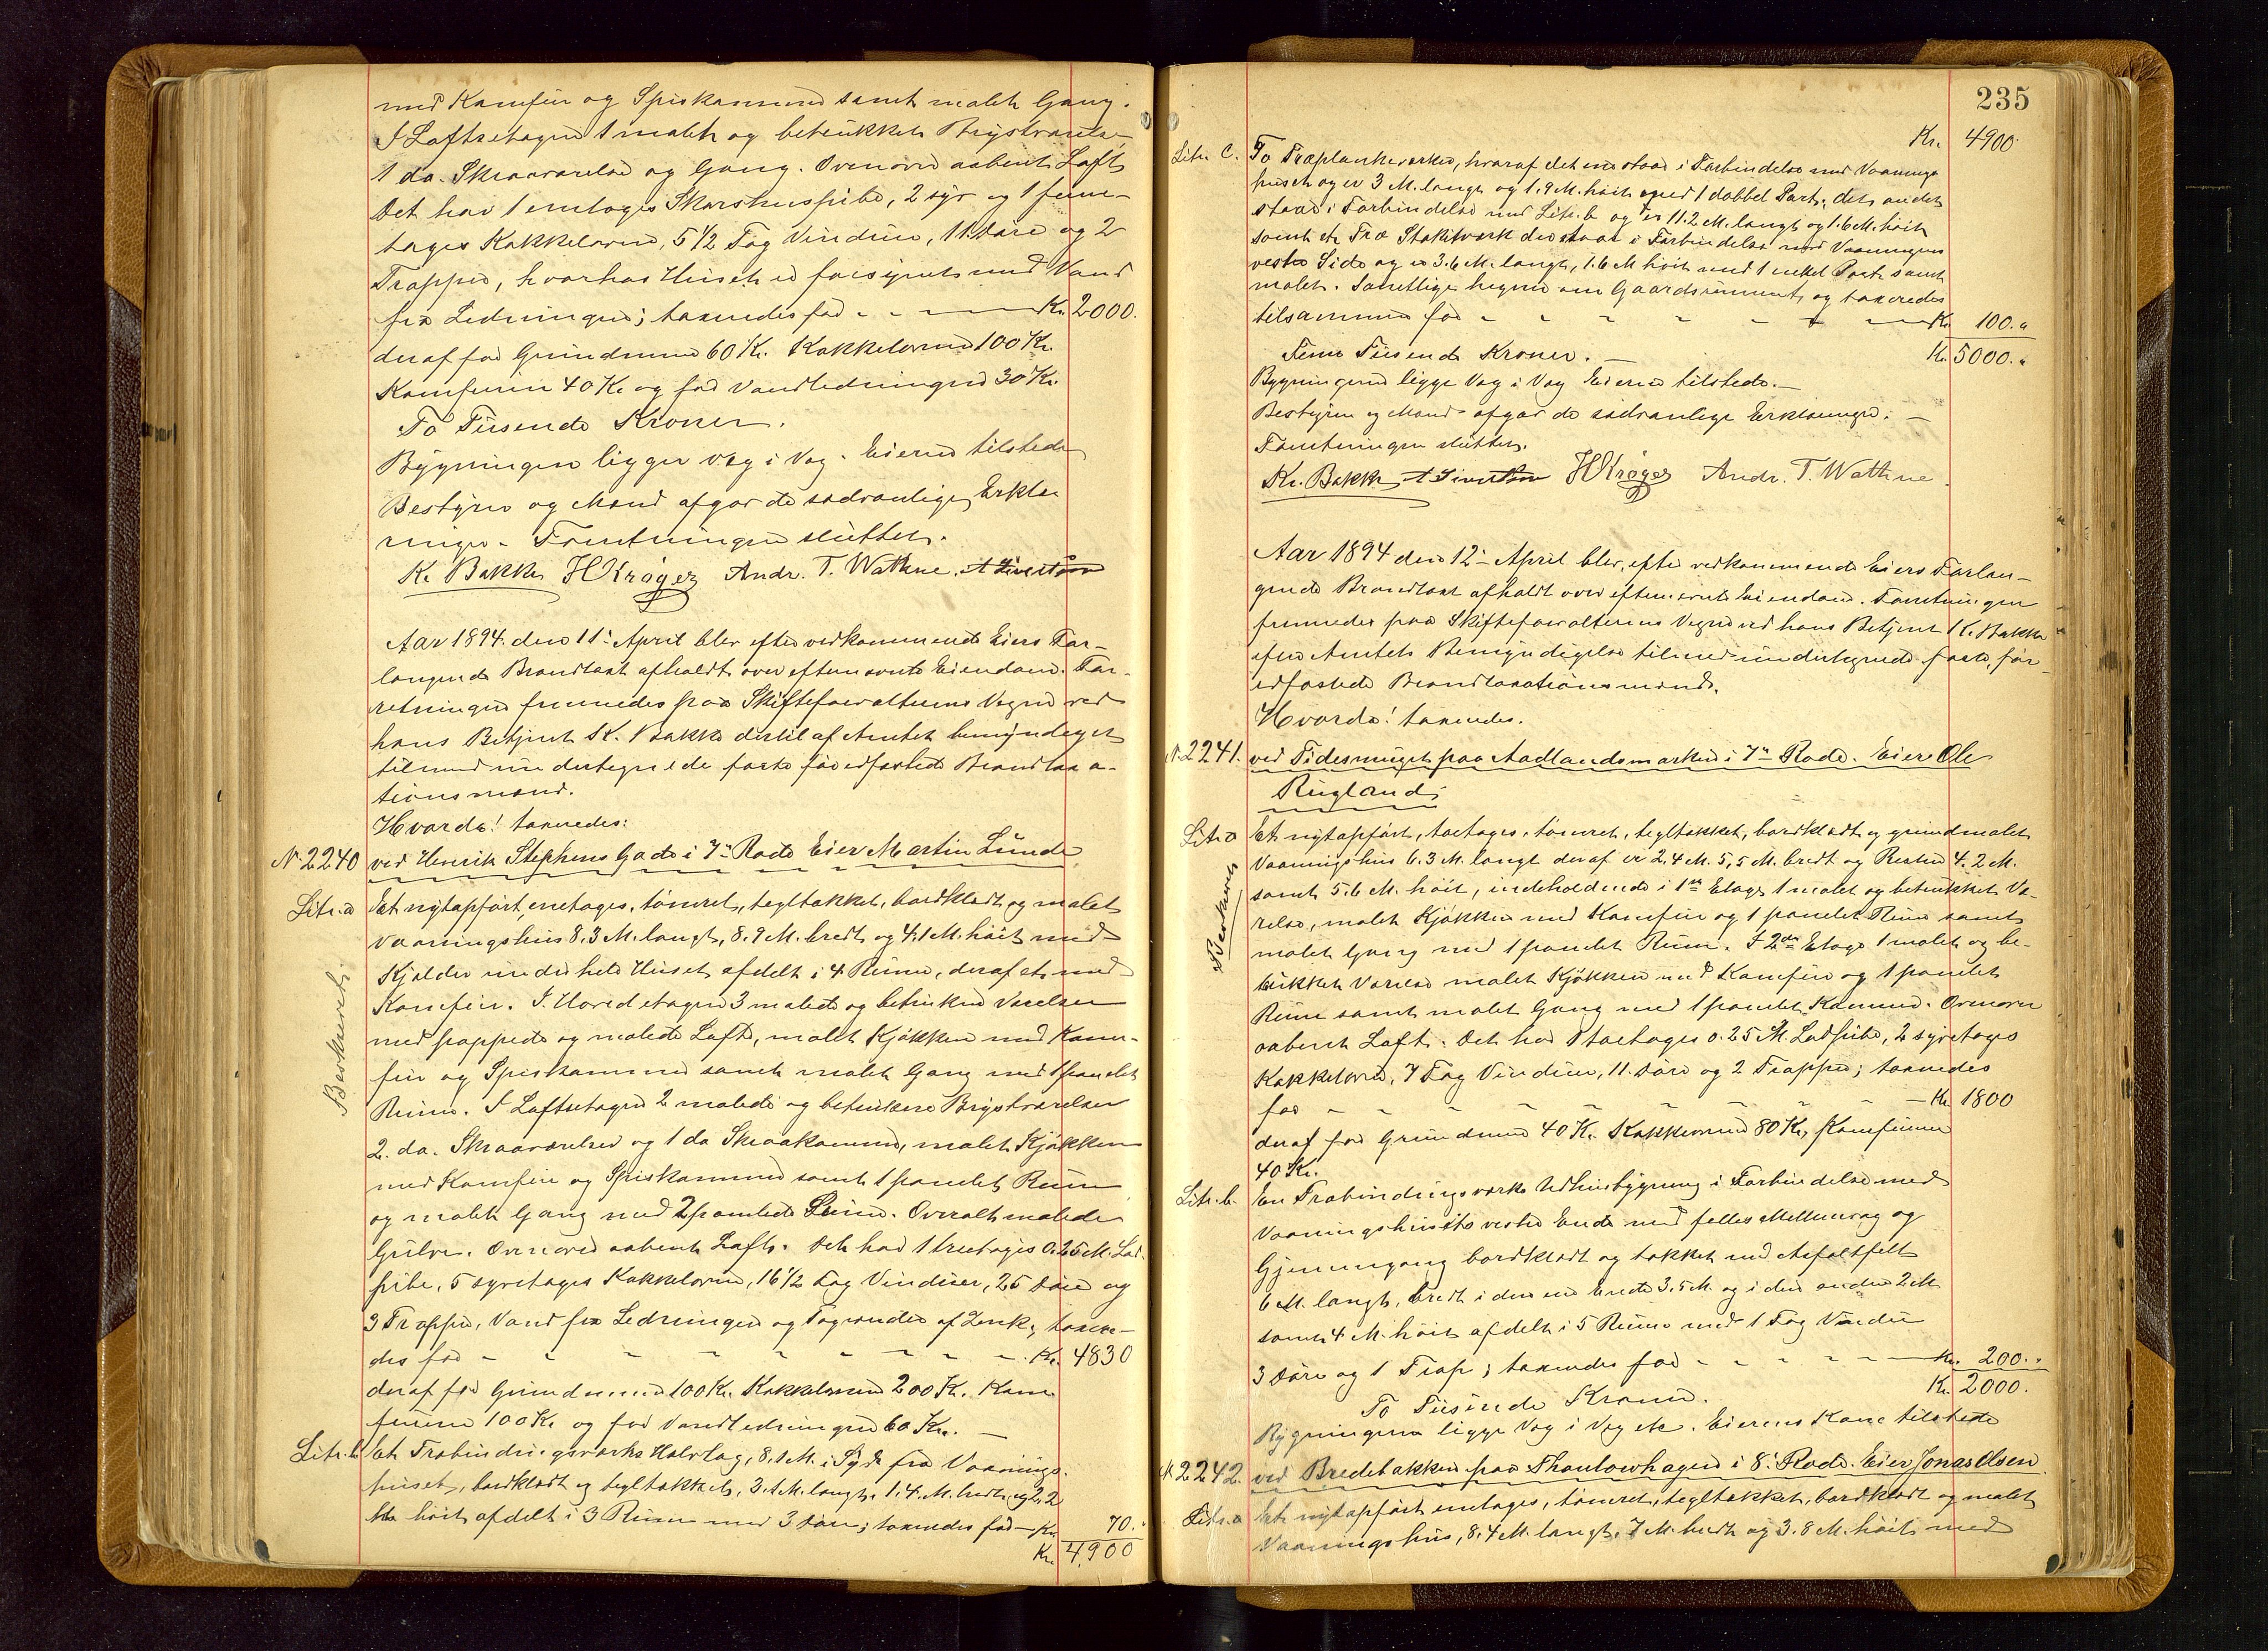 med Komfur og Spiskammer samt malet Gang.
I Loftsetagen 1 malet og betrukket Brystværelse
1 do. Skraaværelse og Gang. Ovenover aabent Loft
Det har 1 enetages Skorstenspibe, 2 syv og 1 feme-
tages Kakkelovne, 5 1/2 Fag Vinduer, 11 Døre og 2
Trapper, hvorhos Huset er forsynet med Vand
fra Ledningen; taxeredes for - - Kr. 2000.
deraf for Grundmuren 60 Kr. Kakkelovne 100 Kr.
Komfuren 40 Kr. og for Vandledningen 30 Kr.
To Tusende Kroner.
Bygningen ligger Væg i Væg. Eieren tilstede
Bestyrer og Mænd afgav de sædvanlige Erklæ-
ringer. Forretningen sluttet.
K. Bakke HKrøger Andr. T. Wathne. A Sivertsen
Aar 1894 den 11te April blev efter vedkommende Eiers For-
langende Brandtaxt afholdt over efternævnte Eiendom. For-
retningen fremmedes paa Skifteforvalterens Vegne ved
hans Betjent K. Bakke dertil af Amtet bemyndiget
tilmed undertegnede faste foredfæstede Brandtaxa-
tionsmænd.
Hvorda! taxeredes:
N. 2240 ved Henrik Stephens Gade i 7de Rode Eier Martin Lunde
Litr. a Et nytopført, enetages, tømret, tegltækket, bordklædt og malet
Vaaningshus 8.3 M. langt, 8.9 M. bredt og 4.1 M. høit med
Kjelder under hele Huset afdelt i 4 Rum, deraf et med
Komfur. I Hovedetagen 3 malede og betrukne Værelser
med pappede og malede Lofte, malet Kjøkken med Kom-
fur og Spiskammer samt malet Gang med 1 panelet
Rum. I Loftsetagen 2 malede og betrukne Brystværelser
2 do. Skraaværelser og 1 do Skraakammer, malet Kjøkken
med Komfur og Spiskammer samt 1 panelet Rum
og malet Gang med 2 panelede Rum. Overalt malede
Gulve. Ovenover aabent Loft. Det har 1 treetages 0.25 M. Lod-
pibe, 5 syvetages Kakkelovne, 16 1/2 Fag Vinduer, 25 Døre og
3 Trapper, Vand fra Ledningen og Tagrender af Zink; taxere-
des for - - - - - - - - Kr. 4830
deraf for Grundmuren 100 Kr. Kakkelovne 200 Kr. Kom-
furene 100 Kr. og for Vandledningen 60 Kr. —
Beskrevet.
Litr. b Et Træbindingsværks Halvtag, 8.1 M. i Syd fra Vaanings-
huset, bordklædt og tegltækket, 3.1 M. langt, 1.4 M. bredt, og 2.2
M. høit afdelt i 3 Rum med 3 Døre; taxeredes for - Kr. 70.
Kr. 4,900
235
Kr. 4900.
Litr. C. To Træplankeværker, hvoraf det ene staar i Forbindelse med Vaanings-
huset og er 3 M. langt og 1.9 M. høit med 1 dobbel Port, det andet
staar i Forbindelse med Litr. b og er 11.2 M. langt og 1.6 M. høit
samt et Træ Stakitværk der staar i Forbindelse med Vaaningens
vestre Side og er 3.6 M. langt, 1.6 M høit med 1 enkel Port samt
malet. Samtlige hegner om Gaardsrummet og taxeredes
tilsammen for - - - - - Kr. 100.
Fem Tusende Kroner. — Kr. 5000.
Bygningerne ligge Væg i Væg Eieren tilstede. —
Bestyrer og Mænd afgav de sædvanlige Erklæringer. —
Forretningen sluttet.
K. Bakke A Sivertsen HKrøger Andr. T. Wathne.
Aar 1894 den 12te April blev, efter vedkommende Eiers Forlan-
gende Brandtaxt afholdt over eftenævnte Eiendom. Forretningen
fremmedes paa Skifteforvalterens Vegne ved hans Betjent K. Bakke
efter Amtets Bemyndigelse tilmed undertegnede faste, for-
edfæstede Brandtaxationsmænd.
Hvorda! taxeredes.
N. 2241. ved Tidesmuget paa Aadlandsmarken i 7de Rode. Eier Ole
Rugland;
Litr. a Et nytopført, toetages, tømret, tegltækket, bordklædt og grundmalet
Vaaningshus 6.3 M. langt deraf er 2.4 M. 5,5 M. bredt og Resten 4.2 M.
samt 5.6 M. høit, indeholdende i 1ste Etage 1 malet og betrukket Væ-
relse, malet Kjøkken med Komfur og 1 panelet Rum samt
malet Gang med 1 panelet Rum. I 2den Etage 1 malet og be-
trukket Værelse malet Kjøkken med Komfur og 1 panelet
Rum samt malet Gang med 1 panelet Kammer. Ovenover
aabent Loft. Det har 1 toetages 0.25 M. Lodpibe, 2 syvetages
Kakkelovne, 7 Fag Vinduer, 11 Døre og 2 Trapper; taxeredes
for - - - - - - - - Kr. 1800
deraf for Grundmuren 40 Kr. Kakkelovne 80 Kr, Komfurene
40 Kr.
Beskrevet
Litr. b. En Træbindingsværks Udhusbygning i Forbindelse med
Vaaningshusets vestre Ende med fælles Mellemvæg og
Gjennemgang bordklædt og tækket med Asfaltfilt
6 M. langt, bredt i den ene Ende 3.5 M. og i den anden 2 M
samt 4 M. høit afdelt i 5 Rum med 1 Fag Vindu
3 Døre og 1 Trap; taxeredes for - - - - - Kr. 200.
To Tusinde Kroner. Kr. 2000.
Bygningerne ligge Væg i Væg etc. Eierens Kone tilstede
N. 2242. ved Bredebakken paa Thoulowhagen i 8de Rode. Eier Jonas Olsen
Litr. a Et nytopført enetages, tømret, tegltækket, bordklædt og malet
Vaaningshus, 8.4 M. langt, 7 M. bredt og 3.8 M. høit med